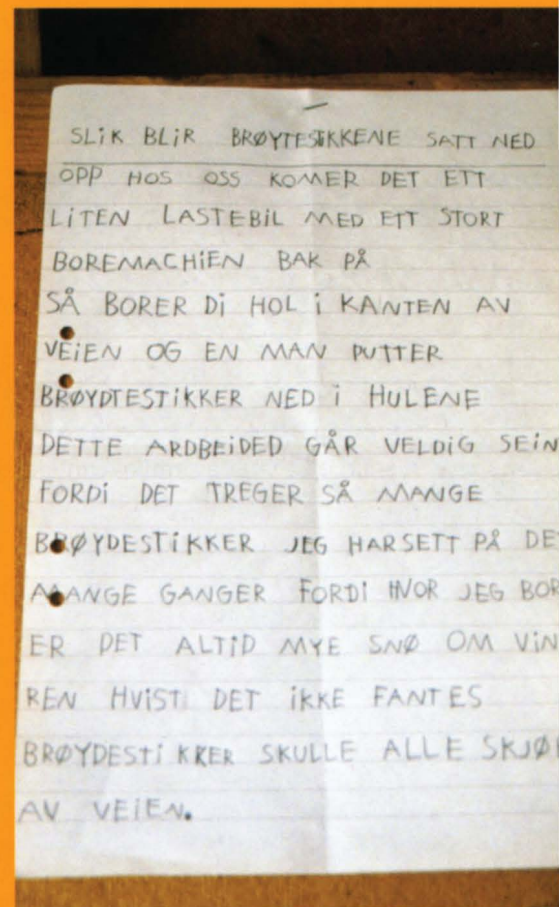 SLiK BLiR BRØYTESTIKKENE SATT NED
OPP HOS OSS KOMER DET ETT
LiTEN LASTEBiL MED ETT STORT
BOREMACHiEN BAK PÅ
SÅ BORER Di HOL i KANTEN AV
VEiEN OG EN MAN PUTTER
BRØYDTESTiKKER NED i HULENE
DETTE ARDBEiDED GÅR VELDiG SEiN
FORDi DET TREGER SÅ MANGE
BRØYDESTiKKER JEG HARSETT PÅ DET
MANGE GANGER FORDI HVOR JEG BOR
ER DET ALTiD MYE SNØ OM VIN
REN HViST DET iKKE FANTES
BRØYDESTiKKER SKULLE ALLE SKJØ
AV VEiEN.